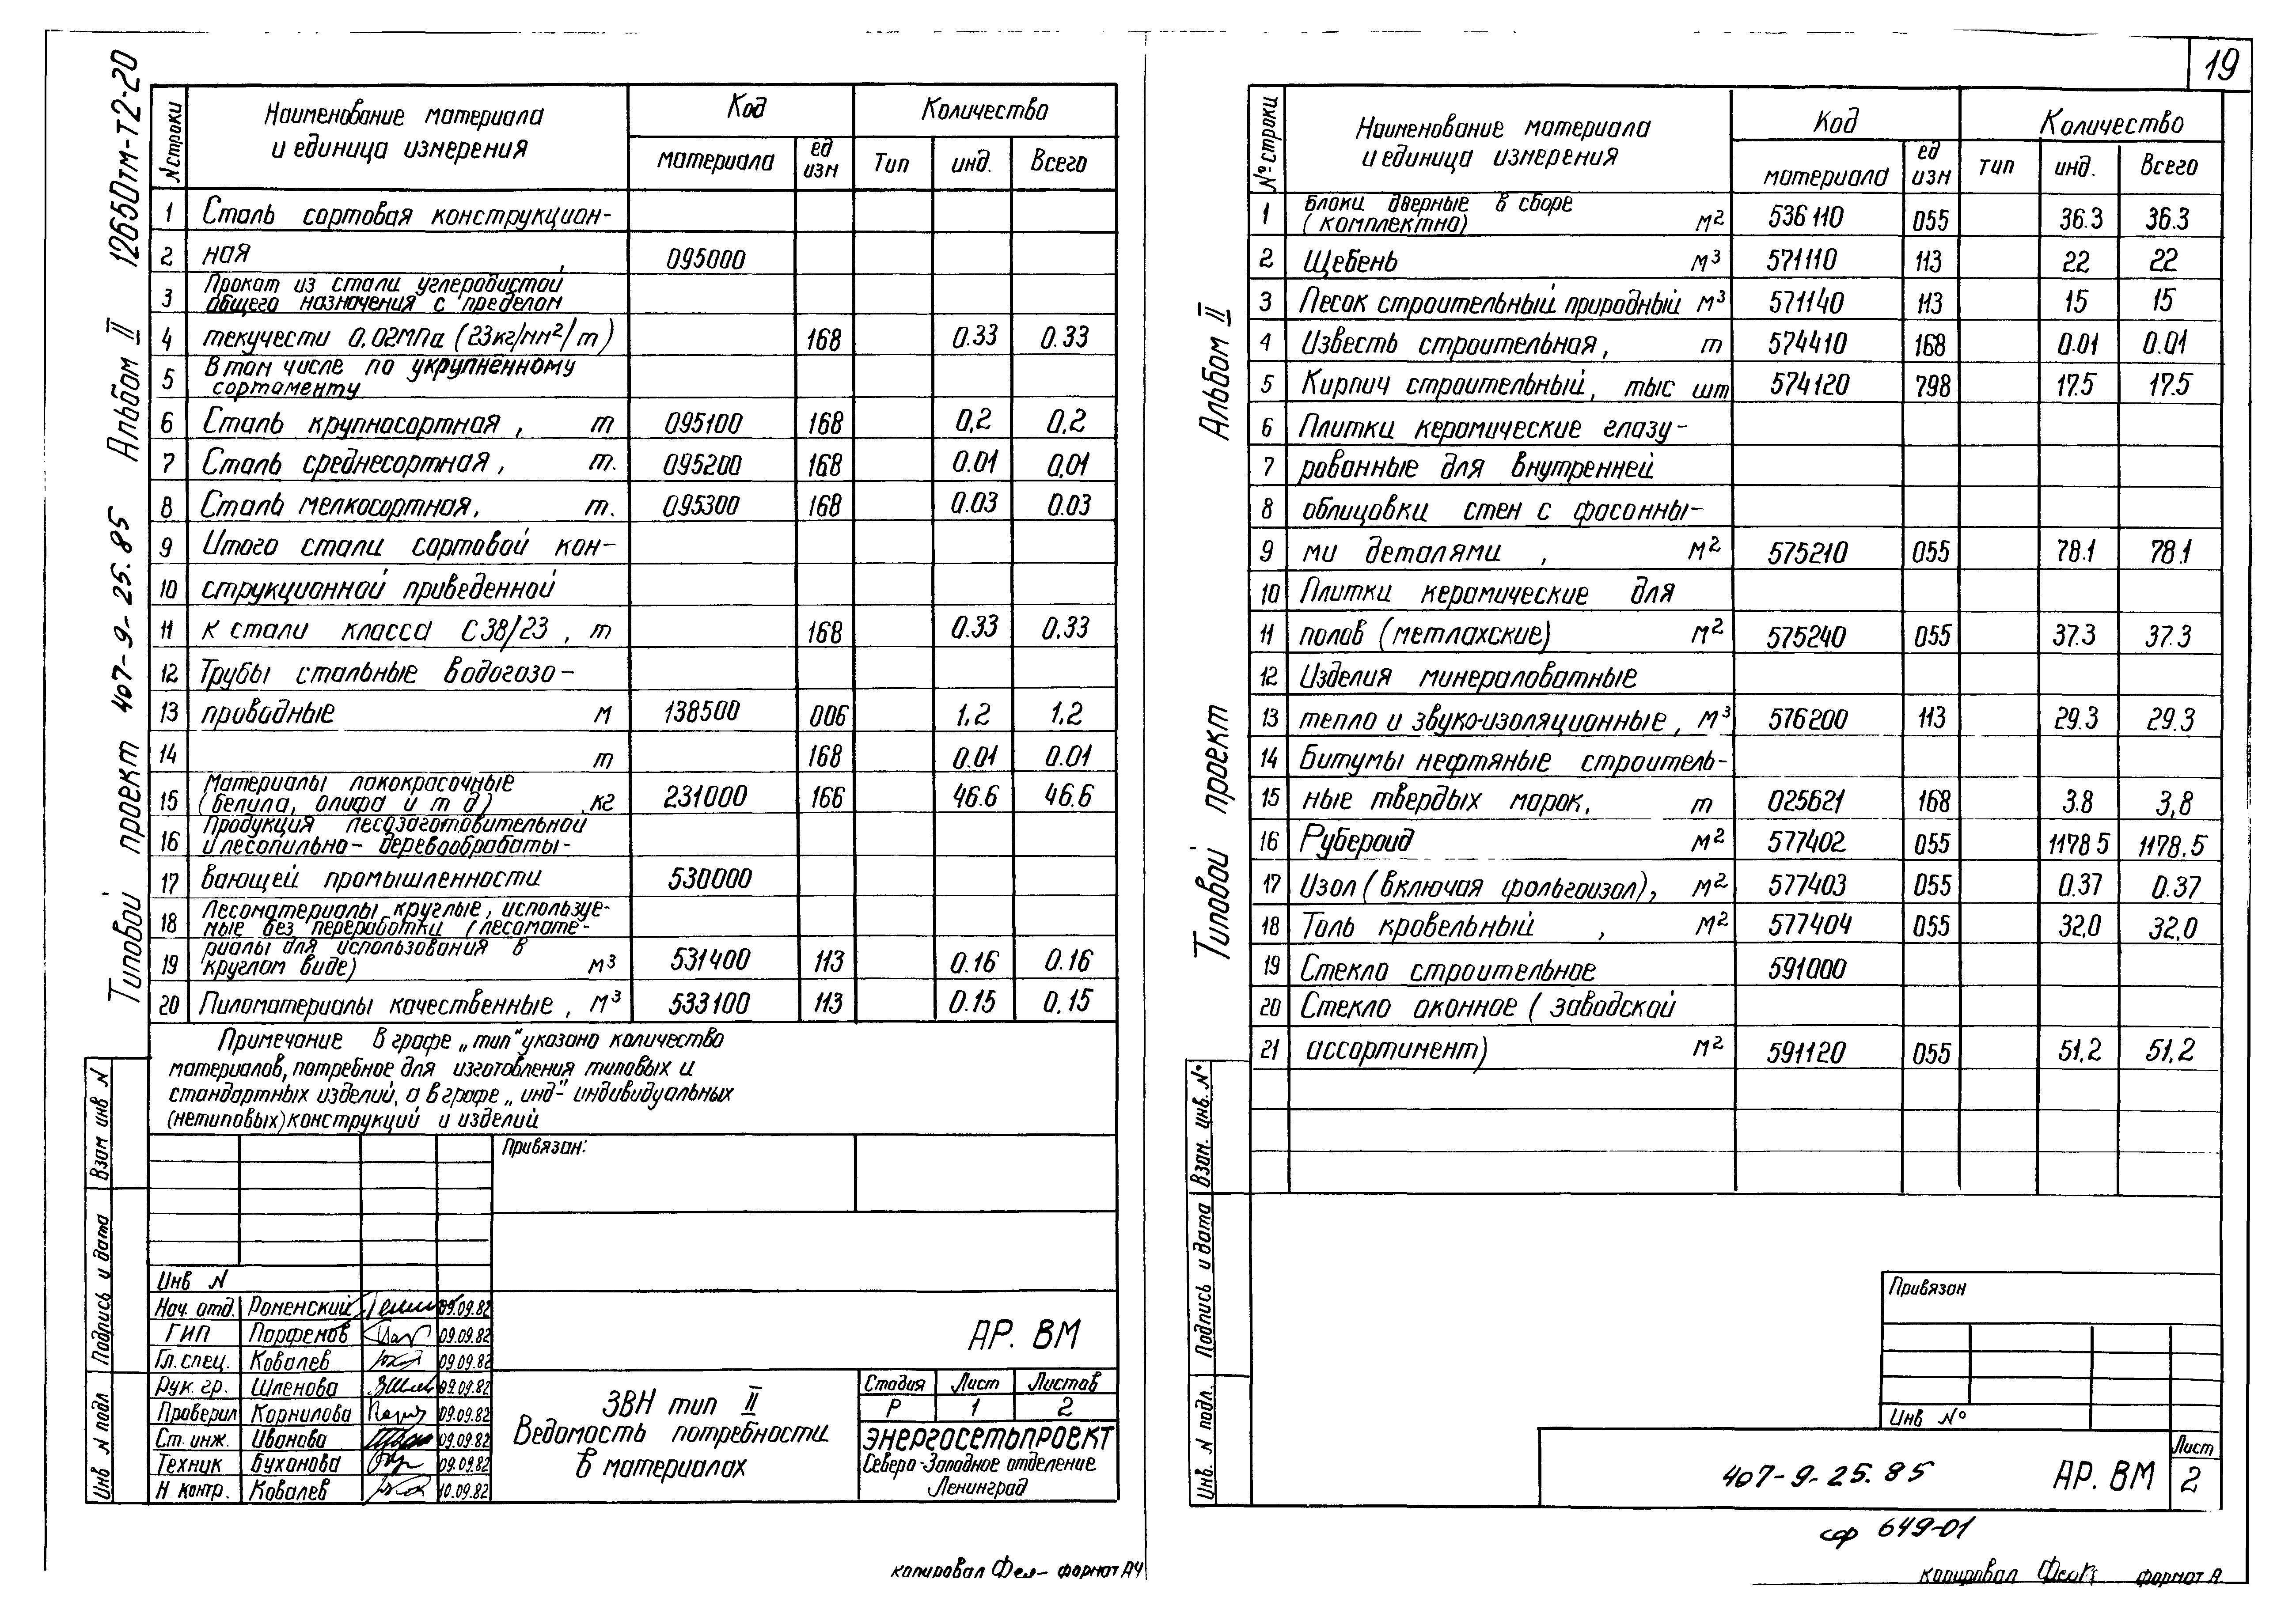 12650тм-т2-20
Альбом II
Типовой проект 407-9-25.85
N строки
Наименование материала
и единица измерения
Код
Количество
материала
ед
изм
Тип
инд.
Всего
1 Сталь сортовая конструкцион-
2 ная 095000
3 Прокат из стали углеродистой
общего назначения с пределом
4 текучести 0,02МПа (23кг/мм²/т) 168 0.33 0.33
5 В том числе по укрупнённому
сортаменту
6 Сталь крупносортная, т 095100 168 0,2 0,2
7 Сталь среднесортная, т. 095200 168 0.01 0,01
8 Сталь мелкосортная, т. 095300 168 0.03 0.03
9 Итого стали сортовой кон-
10 струкционной приведенной
11 к стали класса С38/23, т 168 0.33 0.33
12 Трубы стальные водогазо-
13 проводные м 138500 006 1,2 1,2
14 т 168 0.01 0.01
15 Материалы лакокрасочные
(белила, олифа и т д) .кг 231000 166 46.6 46.6
16 Продукция лесозаготовительной
и лесопильно-деревообрабаты-
17 вающей промышленности 530000
18 Лесоматериалы круглые, используе-
мые без переработки (лесомате-
19 риалы для использования в
круглом виде) м³ 531400 113 0.16 0.16
20 Пиломатериалы качественные, м³ 533100 113 0.15 0,15
Примечание В графе „тип" указано количество
материалов, потребное для изготовления типовых и
стандартных изделий, а в графе „инд"- индивидуальных
(нетиповых) конструкций и изделий
Привязан:
Инв N
Нач. отд. Роменский 09.09.82
ГИП Парфенов 09.09.82
Гл. спец. Ковалев 09.09.82
Рук. гр. Шленова 09.09.82
Проверил Корнилова 09.09.82
Ст. инж. Иванова 09.09.82
Техник Буханова 09.09.82
Н. контр. Ковалев 10.09.82
АР. ВМ
ЗВН тип II
Ведомость потребности
в материалах
Стадия Лист Листов
Р 1 2
ЭНЕРГОСЕТЬПРОЕКТ
Северо-Западное отделение
Ленинград
Взам инв N
Подпись и дата
Инв N подл
копировал формат А4
19
Альбом II
Типовой проект
N° строки
Наименование материала
и единица измерения
Код
Количество
материала
ед
изм
тип
инд.
Всего
1 Блоки дверные в сборе
(комплектно) м² 536110 055 36.3 36.3
2 Щебень м³ 571110 113 22 22
3 Песок строительный природный м³ 571140 113 15 15
4 Известь строительная, т 574410 168 0.01 0.01
5 Кирпич строительный, тыс шт 574120 798 17.5 17.5
6 Плитки керамические глазу-
7 рованные для внутренней
8 облицовки стен с фасонны-
9 ми деталями, м² 575210 055 78.1 78.1
10 Плитки керамические для
11 полов (метлахские) м² 575240 055 37.3 37.3
12 Изделия минераловатные
13 тепло и звуко-изоляционные, м³ 576200 113 29.3 29.3
14 Битумы нефтяные строитель-
15 ные твердых марок, т 025621 168 3.8 3,8
16 Рубероид м² 577402 055 1178 5 1178.5
17 Изол (включая фольгоизол), м² 577403 055 0.37 0.37
18 Толь кровельный, м² 577404 055 32,0 32,0
19 Стекло строительное 591000
20 Стекло оконное (заводской
21 ассортимент) м² 591120 055 51,2 51,2
Привязан
Инв N°
407-9-25.85 АР. ВМ
Лист
2
Взам. инв. N°
Подпись и дата
Инв. N подл.
сф 649-01
копировал формат А